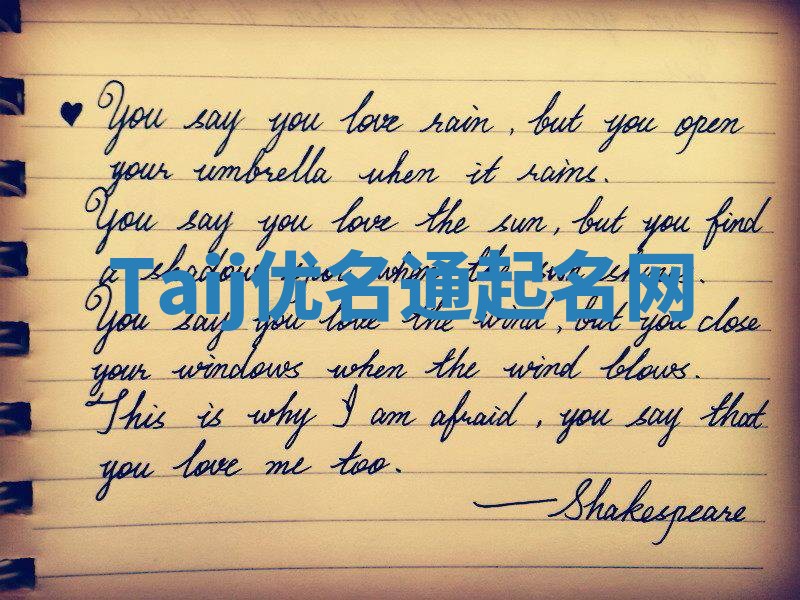 ♥ You say you love rain, but you open
your umbrella when it rains.
You say you love the sun, but you find
a shadow spot when the sun shines.
Taij优名通起名网
You say you love the wind, but you close
your windows when the wind blows.
This is why I am afraid, you say that
you love me too.
—Shakespeare